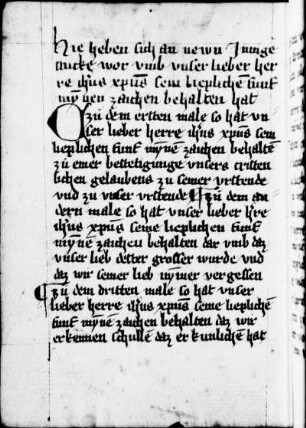 Hie heben sich an newn Junge
stucke wor vmb vnser lieber her
re ihus xpus sein lieplichē funf
myñen zaichen behalten hat
Zü dem ersten male so hat vn
ser lieber herre ihus xpus sein
lieplichen funf myñe zaichen behaltē
zü einer bestetigunge vnsers cristen
lichen gelaubens zü seiner vrstende
vnd zu vnser vrstende ¶ Zü dem an
dern male so hat vnser lieber hre
ihus xpus seine lieplichen funf
myñe zaichen behalten dar vmb daz
vnser lieb dester grosser wurde vnd
daz wir seiner lieb nym̃er vergessen
¶ Zü dem dritten male so hat vnser
lieber herre ihus xpus seine lieplichē
funf myñe zaichen behalten daz wir
erkennen schulle daz er kunlichē hat